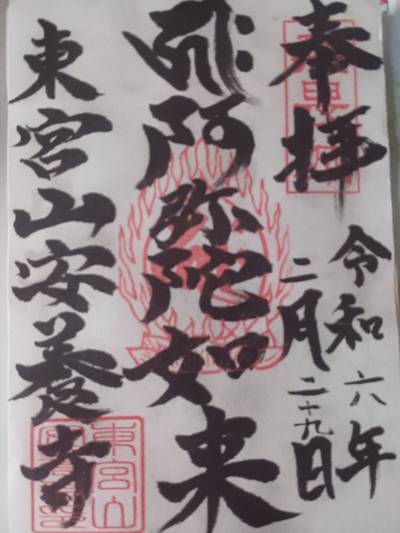 奉拝
令和六年
二月二十九日
阿弥陀如来
東宮山安養寺
東宮山